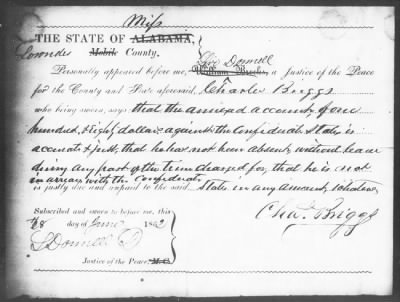 Miss
THE STATE OF ALABAMA,
Lowndes Mobile County.
Personally appeared before me, Donnell a Justice of the Peace
for the County and State aforesaid, Charles Briggs
who being sworn, says that the annexed account of one
hundred & Eighty dollars against the Confederate States is
accurate & just, that he has not been absent without leave
during any part of the term charged for, that he is not
in arrears with the Confederate
is justly due and unpaid to the said States in any amount whatever
Subscribed and sworn to before me, this
28 day of June 1862
Donnell
Justice of the Peace M.C.
Chas. Briggs